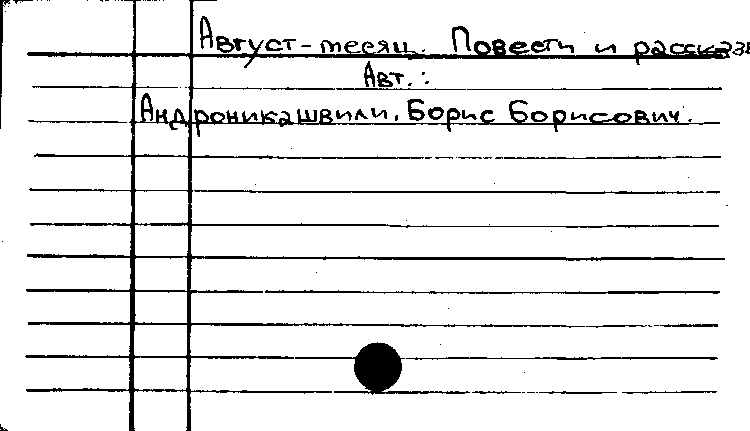 Август-месяц. Повести и рассказы
Авт.:
Андроникашвили, Борис Борисович.